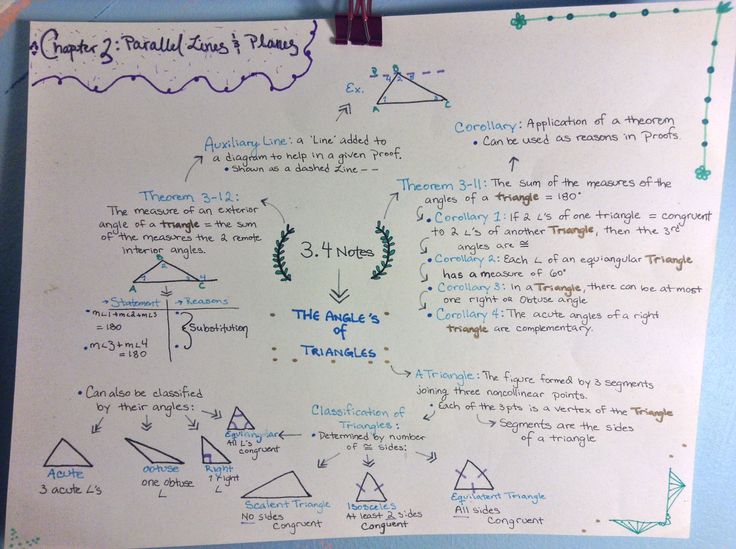 Chapter 3: Parallel Lines & Planes
Ex.
D B
4 2 5
1 3
A C
Auxiliary Line: a 'Line' added to
a diagram to help in a given Proof.
• Shown as a dashed Line --
Corollary: Application of a theorem
• Can be used as reasons in Proofs.
Theorem 3-12:
The measure of an exterior
angle of a triangle = the sum
of the measures the 2 remote
interior angles.
B
2
1 3 4
A C
→ Statement → Reasons
• m∠1+m∠2+m∠3
= 180
• m∠3+m∠4
= 180
Substitution
3.4 Notes
THE ANGLE'S
of
TRIANGLES
Theorem 3-11: The sum of the measures of the
angles of a triangle = 180°
• Corollary 1: If 2 ∠'s of one triangle = congruent
to 2 ∠'s of another Triangle, then the 3rd
angles are ≅
• Corollary 2: Each ∠ of an equiangular Triangle
has a measure of 60°
• Corollary 3: In a Triangle, there can be at most
one right or obtuse angle
• Corollary 4: The acute angles of a right
triangle are complementary.
A Triangle: The figure formed by 3 segments
joining three noncollinear points.
• Each of the 3 pts is a vertex of the Triangle
→ Segments are the sides
of a triangle
• Can also be classified
by their angles:
Acute
3 acute ∠'s
Obtuse
one obtuse
∠
Right
1 right
∠
Equiangular
All ∠'s
congruent
Classification of
Triangles:
• Determined by number
of ≅ sides:
Scalent Triangle
No sides
Congruent
Isosceles
At least 2 sides
Congruent
Equilatent Triangle
All sides
Congruent